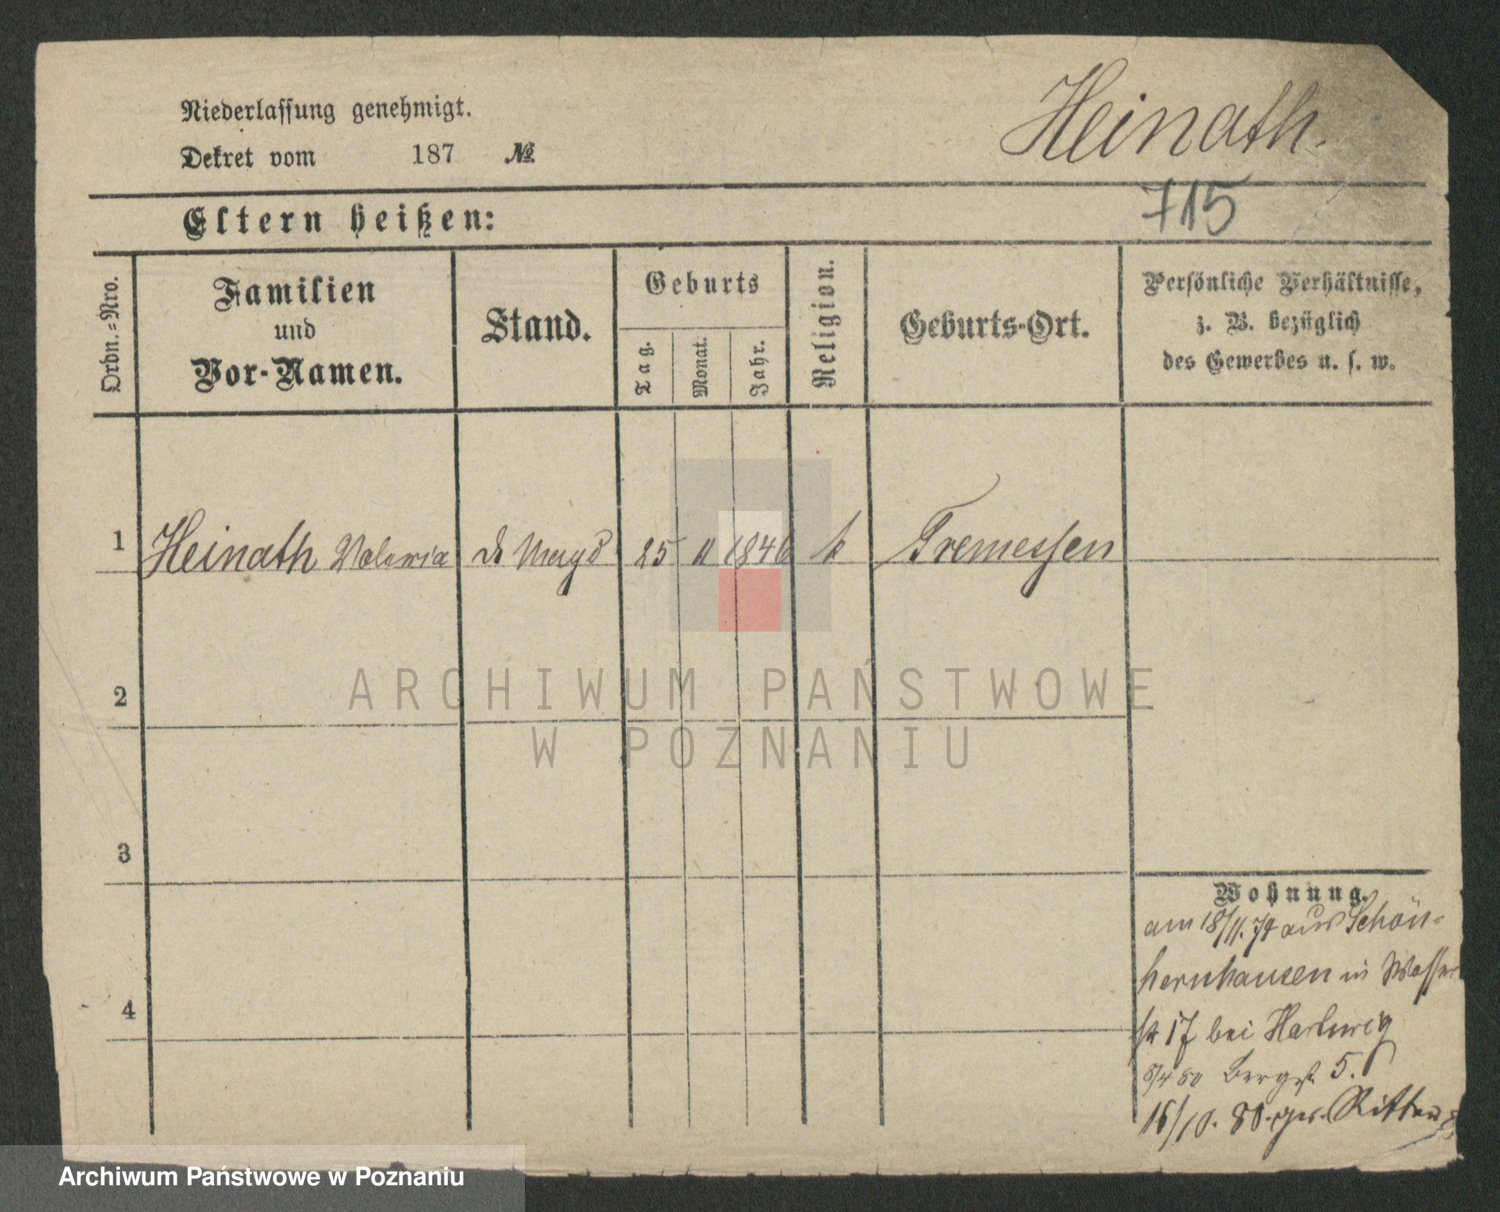 Heinath.
Niederlassung genehmigt.
Dekret vom 187 №
715
Eltern heißen:
Ordn.=Nro.
Familien
und
Vor-Namen.
Stand.
Geburts
Tag.
Monat.
Jahr.
Religion.
Geburts-Ort.
Persönliche Verhältnisse,
z. B. bezüglich
des Gewerbes u. s. w.
1 Heinath Valeria Magd 25 11 1846 k Tremessen
2
3
4
Wohnung.
am 18/11. 79 aus Schön-
hernhausen in Wasser
st 17 bei Hartwig
5/4 80 Bergst 5.
16/10. 80. Ritter
ARCHIWUM PAŃSTWOWE
W POZNANIU
Archiwum Państwowe w Poznaniu